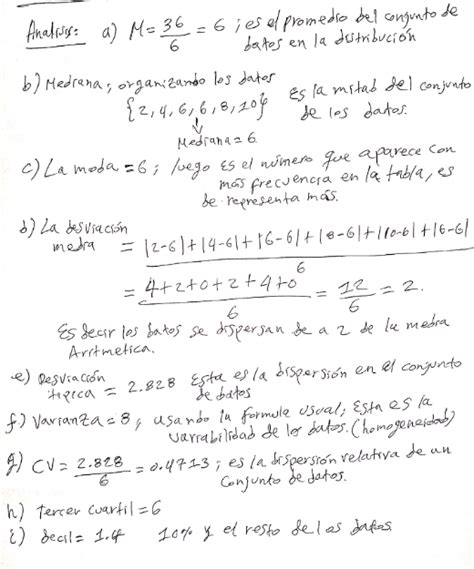 Analisis: a) M = 36/6 = 6 ; es el promedio del conjunto de
datos en la distribución
b) Mediana; organizando los datos
{2, 4, 6, 6, 8, 10} es la mitad del conjunto
de los datos.
Mediana = 6
c) La moda = 6 ; luego es el número que aparece con
más frecuencia en la tabla, es
de representa más.
d) La desviación
media = |2-6|+|4-6|+|6-6|+|8-6|+|10-6|+|6-6| / 6
= 4+2+0+2+4+0 / 6 = 12/6 = 2.
Es decir los datos se dispersan de a 2 de la media
Aritmetica.
e) Desviación
tipica = 2.828 Esta es la dispersión en el conjunto
de datos
f) Varianza = 8, usando la formula usual; Esta es la
variabilidad de los datos. (homogeneidad)
g) CV = 2.828/6 = 0.4713 ; es la dispersión relativa de un
conjunto de datos.
h) Tercer cuartil = 6
i) decil = 1.4 10% y el resto de los datos.